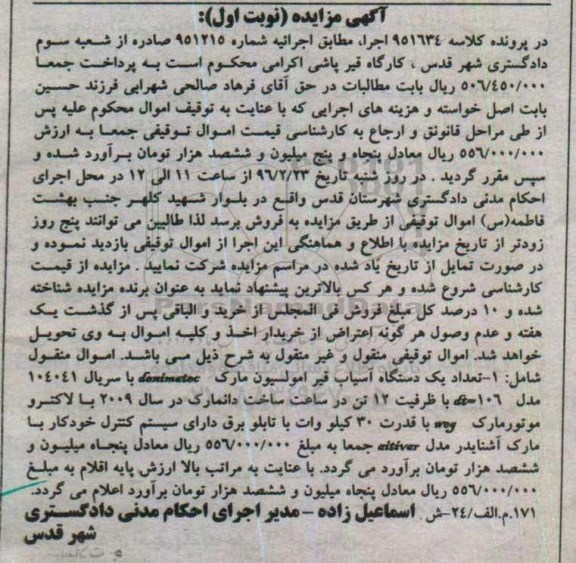 آگهی مزایده (نوبت اول):
در پرونده کلاسه ۹۵۱۶۳٤ اجرا، مطابق اجرائیه شماره ۹۵۱۲۱۵ صادره از شعبه سوم
دادگستری شهر قدس ، کارگاه قیر پاشی اکرامی محکوم است به پرداخت جمعا
۵۰۶/٤۵۰/۰۰۰ ریال بابت مطالبات در حق آقای فرهاد صالحی شهرابی فرزند حسین
بابت اصل خواسته و هزینه های اجرایی که با عنایت به توقیف اموال محکوم علیه پس
از طی مراحل قانونق و ارجاع به کارشناسی قیمت اموال توقیفی جمعا به ارزش
۵۵۶/۰۰۰/۰۰۰ ریال معادل پنجاه و پنج میلیون و ششصد هزار تومان برآورد شده و
سپس مقرر گردید . در روز شنبه تاریخ ۹۶/۲/۲۳ از ساعت ۱۱ الی ۱۲ در محل اجرای
احکام مدنی دادگستری شهرستان قدس واقع در بلوار شهید کلهر جنب بهشت
فاطمه(س) اموال توقیفی از طریق مزایده به فروش برسد لذا طالبین می توانند پنج روز
زودتر از تاریخ مزایده با اطلاع و هماهنگی این اجرا از اموال توقیفی بازدید نموده و
در صورت تمایل از تاریخ یاد شده در مراسم مزایده شرکت نمایید . مزایده از قیمت
کارشناسی شروع شده و هر کس بالاترین پیشنهاد نماید به عنوان برنده مزایده شناخته
شده و ۱۰ درصد کل مبلغ فروش فی المجلس از خرید و الباقی پس از گذشت یک
هفته و عدم وصول هر گونه اعتراض از خریدار اخذ و کلیه اموال به وی تحویل
خواهد شد. اموال توقیفی منقول و غیر منقول به شرح ذیل می باشد. اموال منقول
شامل: ۱-تعداد یک دستگاه آسیاب قیر امولسیون مارک denimotec با سریال ۱۰٤۰٤۱
مدل ۱۰۶ با ظرفیت ۱۲ تن در ساعت ساخت دانمارک در سال ۲۰۰۹ با لاکترو
موتورمارک weg با قدرت ۳۰ کیلو وات با تابلو برق دارای سیستم کنترل خودکار با
مارک آشنایدر مدل altivar جمعا به مبلغ ۵۵۶/۰۰۰/۰۰۰ ریال معادل پنجاه میلیون و
ششصد هزار تومان برآورد می گردد. با عنایت به مراتب بالا ارزش پایه اقلام به مبلغ
۵۵۶/۰۰۰/۰۰۰ ریال معادل پنجاه میلیون و ششصد هزار تومان برآورد اعلام می گردد.
۱۷۱.م.الف/۲٤-ش. اسماعیل زاده - مدیر اجرای احکام مدنی دادگستری
شهر قدس